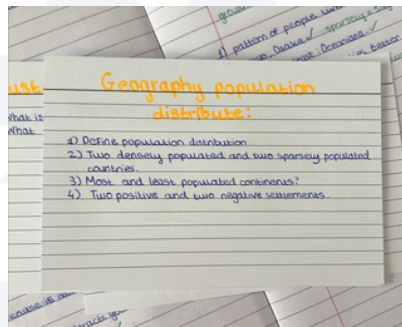 Geography population
distribute:
1) Define population distribution
2) Two densely populated and two sparsely populated
countries.
3) Most and least populated continents?
4) Two positive and two negative settlements.
ust
What is
What
1) pattern of people
Osaka ✓ sparsely =
Oceania. ✓
better
cause is
tracts you